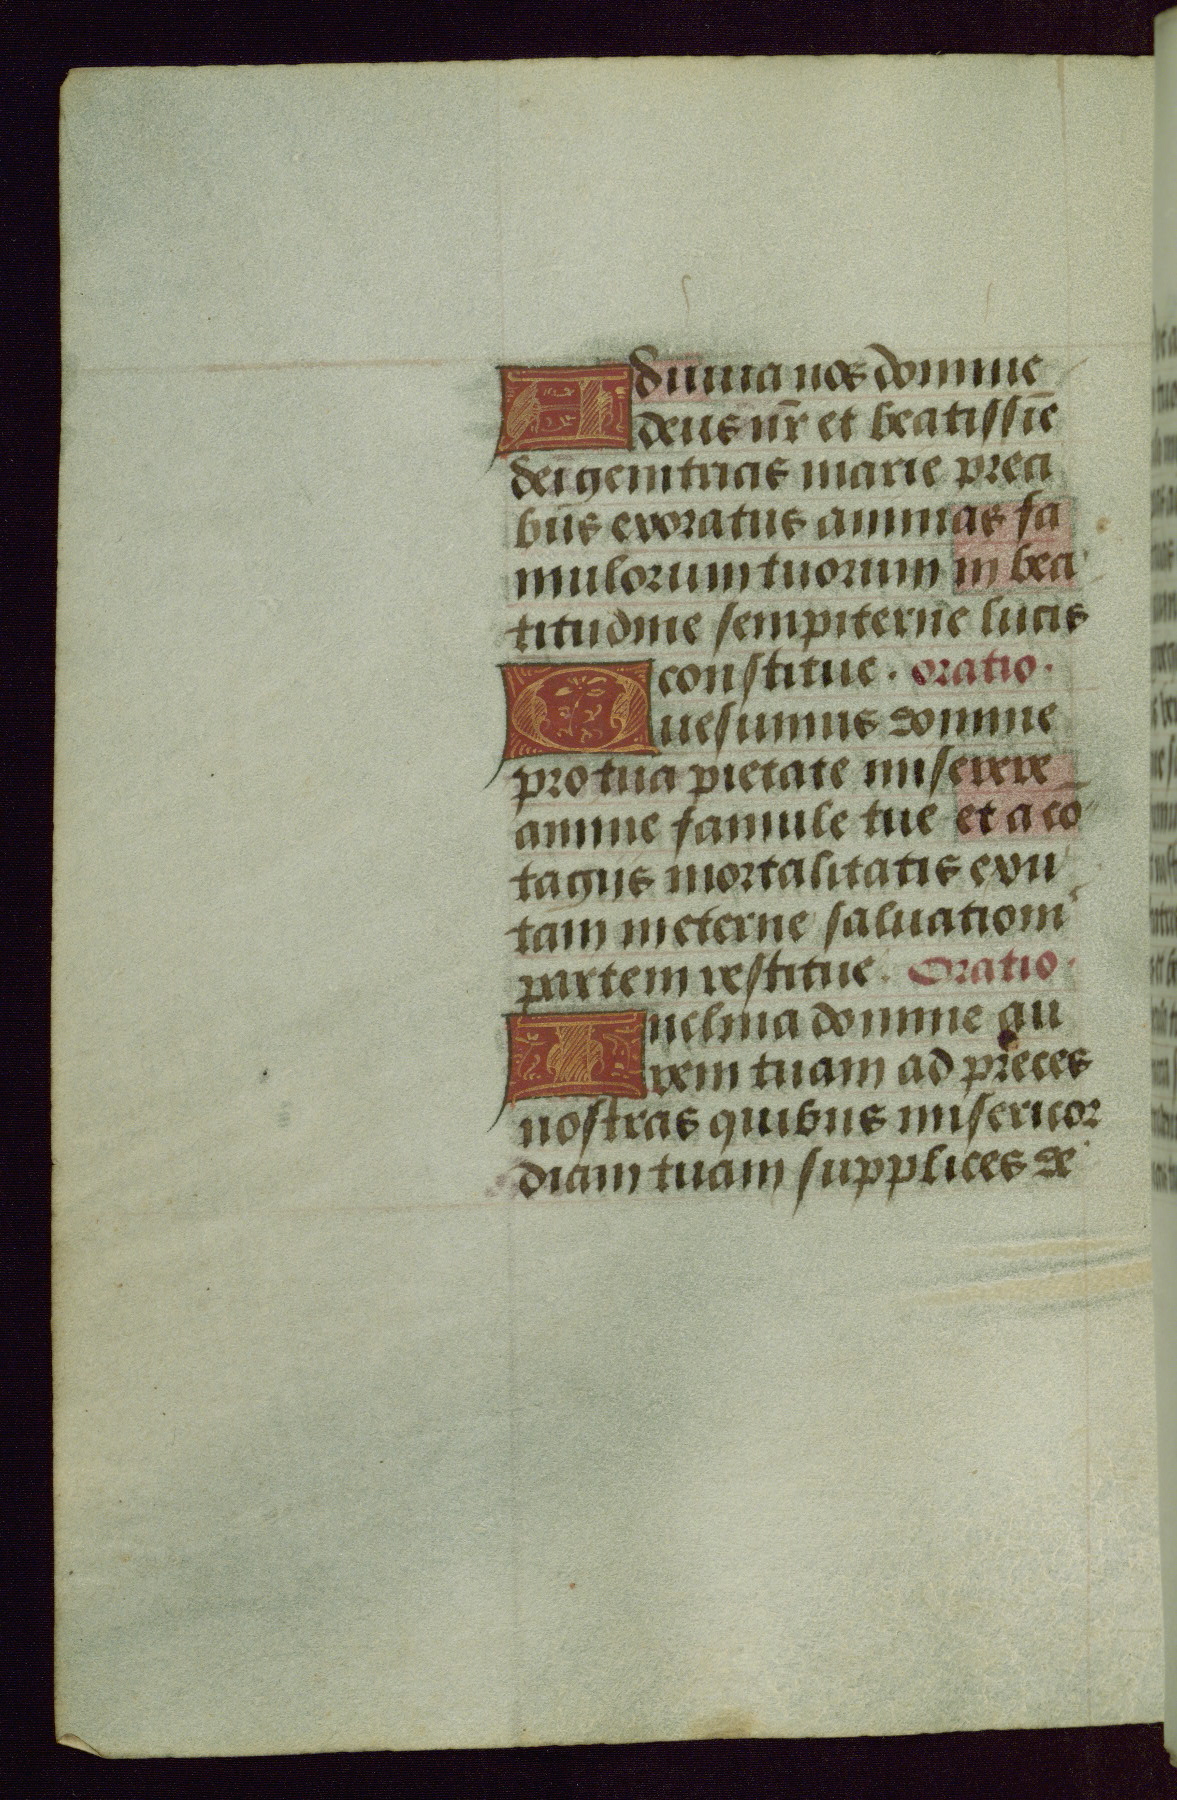 Adiuua nos domine
deus nr̄ et beatissīe
dei genitricis marie preci
bus exoratus animas fa
mulorum tuorum in bea
titudine sempiterne lucis
constitue. oratio.
Quesumus domine
pro tua pietate miserere
anime famule tue et a cō
tagiis mortalitatis exu
tam in eterne saluationi
partem restitue. Oratio.
Inclina domine au
rem tuam ad preces
nostras quibus misericor
diam tuam supplices de